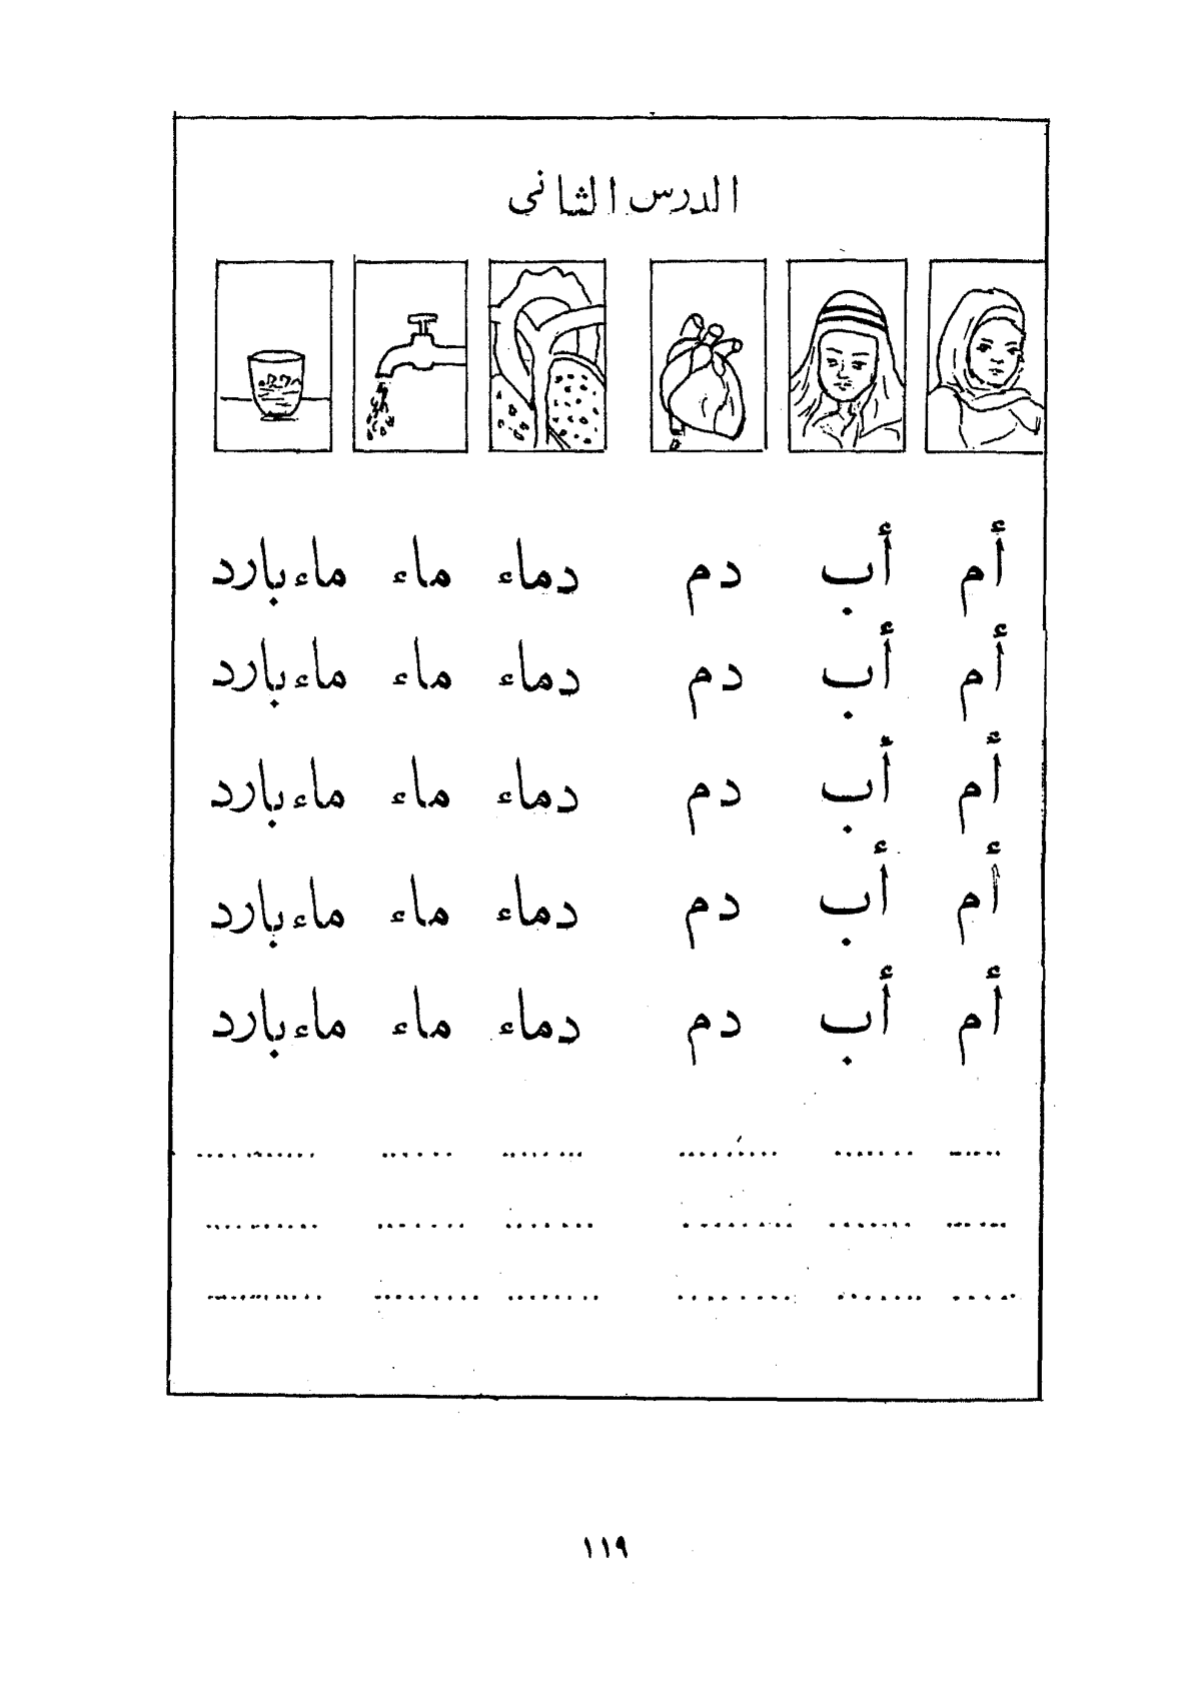 الدرس الثانى
أم أب دم دماء ماء ماء بارد
أم أب دم دماء ماء ماء بارد
أم أب دم دماء ماء ماء بارد
أم أب دم دماء ماء ماء بارد
أم أب دم دماء ماء ماء بارد
١١٩